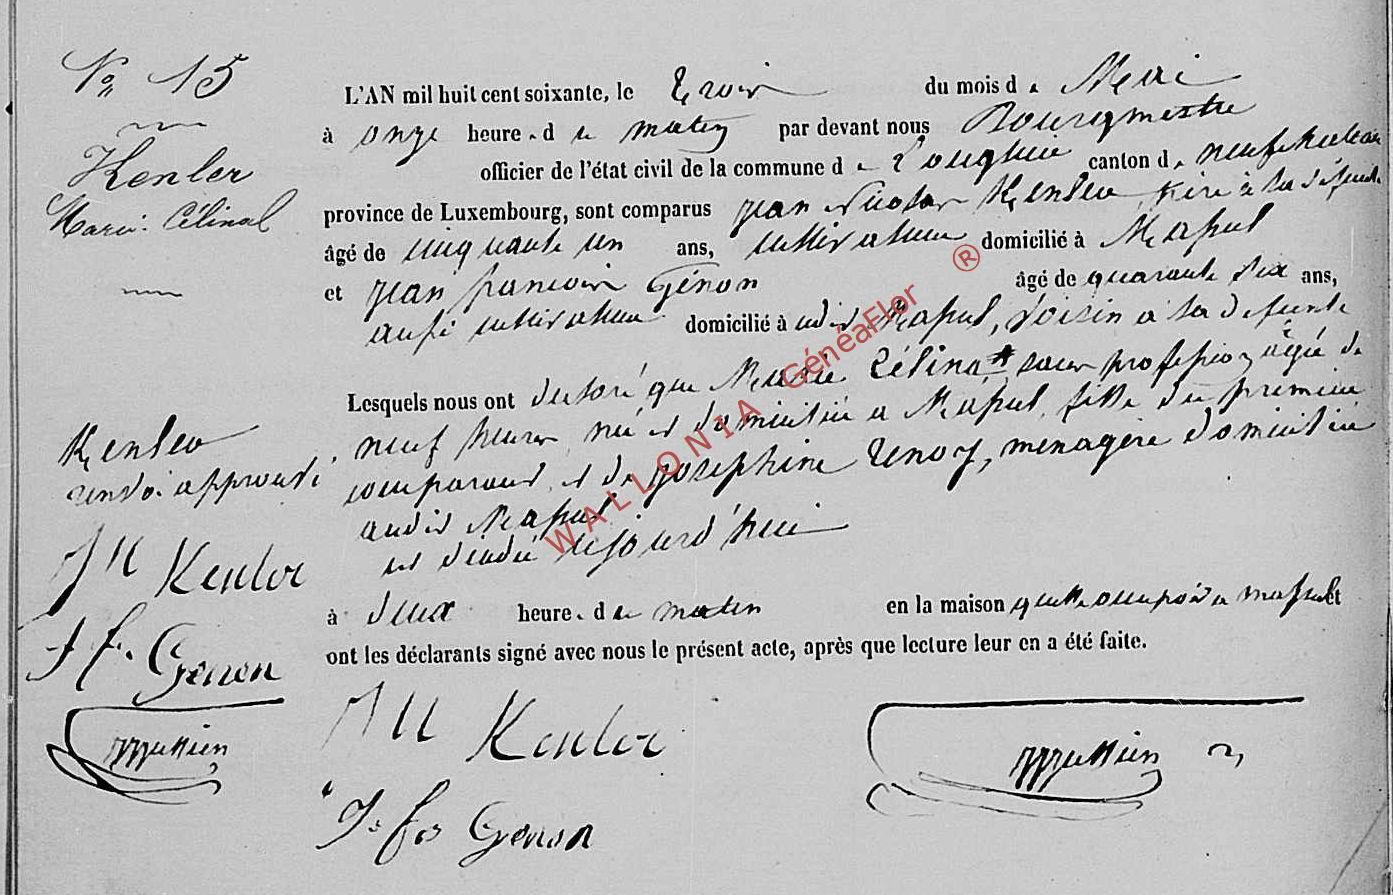 No 15
Kenler
Marie Célina
L'AN mil huit cent soixante, le trois du mois d e Mai
à onze heure s d u matin par devant nous Bourgmestre
officier de l'état civil de la commune d e Longlier canton d e neufchateau
province de Luxembourg, sont comparus jean Nicolas Kenler, père à la défunte
âgé de cinquante un ans, cultivateur domicilié à Massul
et jean françois Génon âgé de quarante six ans,
aussi cultivateur domicilié à udit Massul, voisin à la défunte
Lesquels nous ont déclaré que Marie Célina* sans profession âgée de
neuf heures, née et domiciliée à Massul, fille du premier
comparant et de joséphine Zenoy, ménagère domiciliée
audit Massul
est décédée aujourd'hui
à deux heure s d u matin en la maison qu'elle occupoit à massul et
ont les déclarants signé avec nous le présent acte, après que lecture leur en a été faite.
Kenler
renvoi approuvé
JN Kenler
J f. Genon
JN Kenler
J. fs Genon
WALLONIA GénéaFlor ®